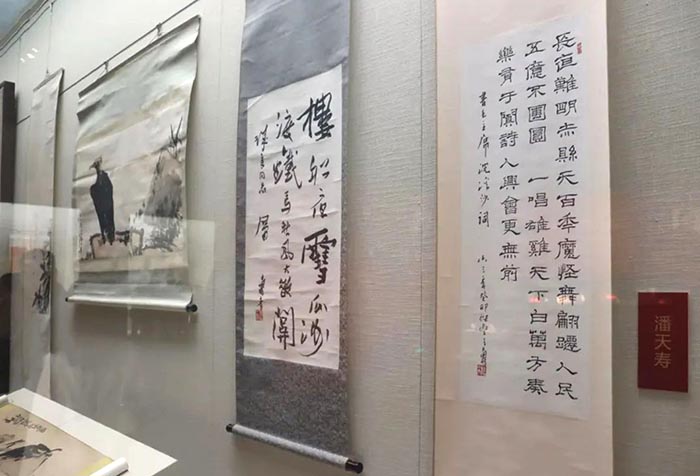 潘天寿
長夜難明赤縣天百年魔怪舞翩躚人民
五億不團圓一唱雄雞天下白萬方奏
樂有于闐詩人興會更無前
書毛主席浣溪沙詞
樓船夜雪瓜洲
渡鐵馬秋風大散關
同志屬